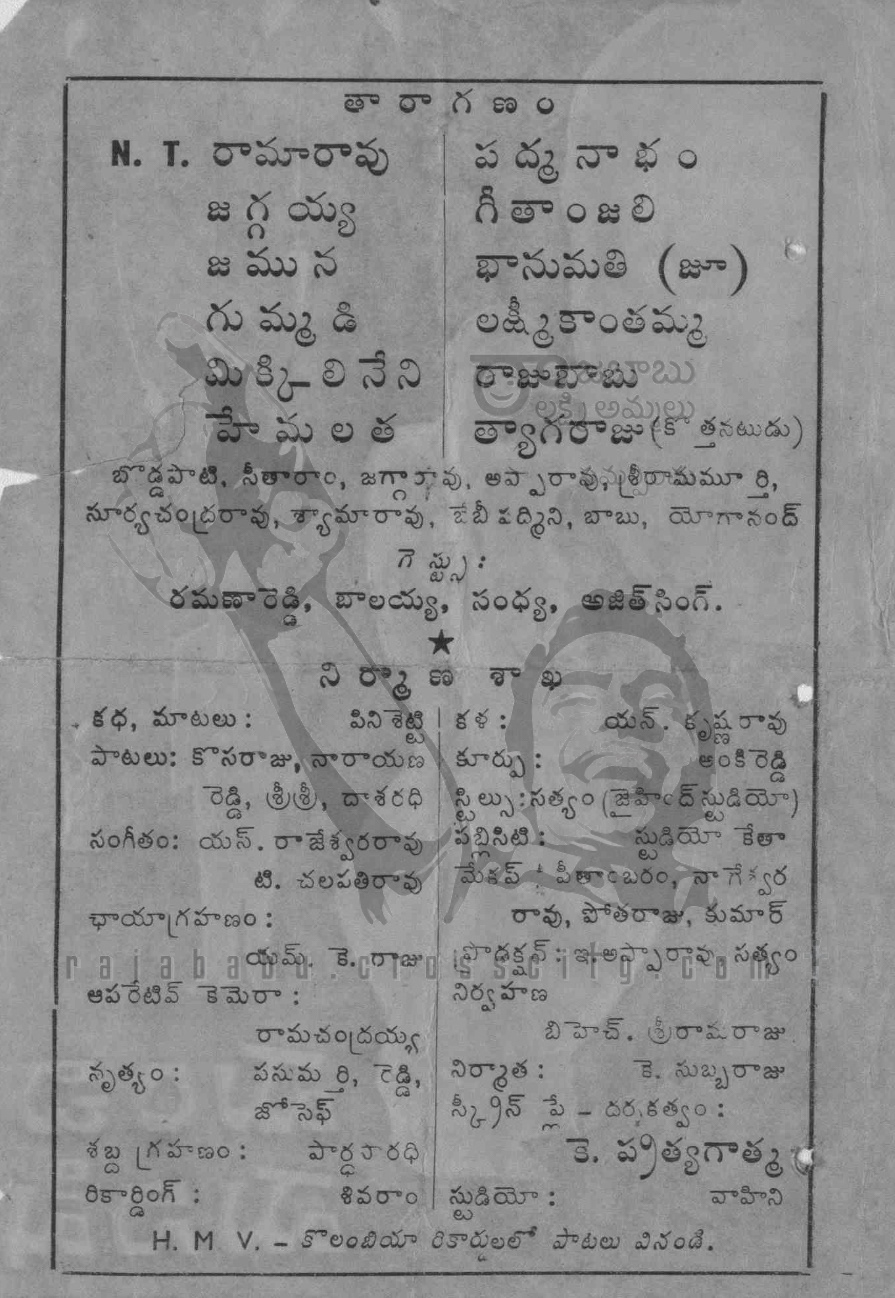 తారాగణం
N. T. రామారావు
జగ్గయ్య
జమున
గుమ్మడి
మిక్కిలినేని
హేమలత
పద్మనాభం
గీతాంజలి
భానుమతి (జూ)
లక్ష్మీకాంతమ్మ
రాజుబాబు
త్యాగరాజు (కొత్తనటుడు)
బొడ్డపాటి, సీతారాం, జగ్గారావు, అప్పారావు, శ్రీరామమూర్తి,
సూర్యచంద్రరావు, శ్యామారావు, బేబీ పద్మిని, బాబు, యోగానంద్
గెస్ట్సు:
రమణారెడ్డి, బాలయ్య, సంధ్య, అజిత్‌సింగ్.
నిర్మాణ శాఖ
కధ, మాటలు: పినిశెట్టి
పాటలు: కొసరాజు, నారాయణ
రెడ్డి, శ్రీశ్రీ, దాశరధి
సంగీతం: యస్. రాజేశ్వరరావు
టి. చలపతిరావు
ఛాయాగ్రహణం:
యమ్. కె. రాజు
ఆపరేటివ్ కెమెరా:
రామచంద్రయ్య
నృత్యం: పసుమర్తి, రెడ్డి,
జోసెఫ్
శబ్దగ్రహణం: పార్ధసారధి
రికార్డింగ్: శివరాం
కళ: యన్. కృష్ణరావు
కూర్పు: అంకిరెడ్డి
స్టిల్సు: సత్యం (జైహింద్ స్టుడియో)
పబ్లిసిటి: స్టుడియో కేతా
మేకప్: పీతాంబరం, నాగేశ్వర
రావు, పోతరాజు, కుమార్
ప్రొడక్షన్: ఇ. అప్పారావు, సత్యం
నిర్వహణ
బి హెచ్. శ్రీరామరాజు
నిర్మాత: కె. సుబ్బరాజు
స్క్రీన్ ప్లే – దర్శకత్వం:
కె. ప్రత్యగాత్మ
స్టుడియో: వాహిని
H. M. V. – కొలంబియా రికార్డులలో పాటలు వినండి.
rajababu.crosscity.com